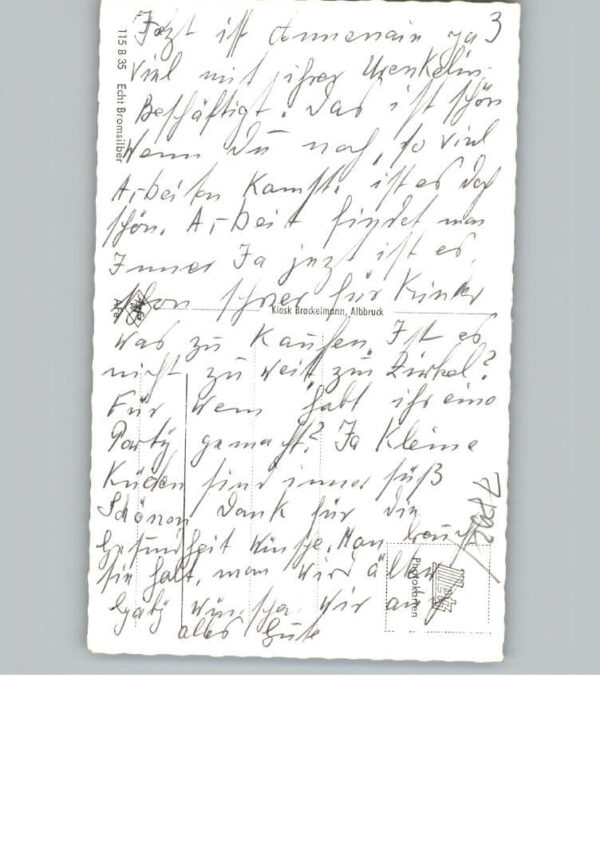 3
Jezt ist Annemarie ja
viel mit ihrer Urenkelin
Beschäftigt. Das ist schön
Wenn Du noch, so viel
Arbeiten Kanst. ist es doch
schön. Arbeit findet man
Immer Ja jezt ist es
schon schwer für Kinder
was zu Kaufen. Ist es
nicht zu weit zum Zirkel?
Für wem habt ihr eine
Party gemacht? Ja Kleine
Küken sind immer süß
Schönen Dank für die
Gesundheit wünsche. Man braucht
sie halt, man wird älter
Gaby wünschen wir auch
alles Gute
115 B 35 Echt Bromsilber
Kiosk Brockelmann, Albbruck
Photokarten